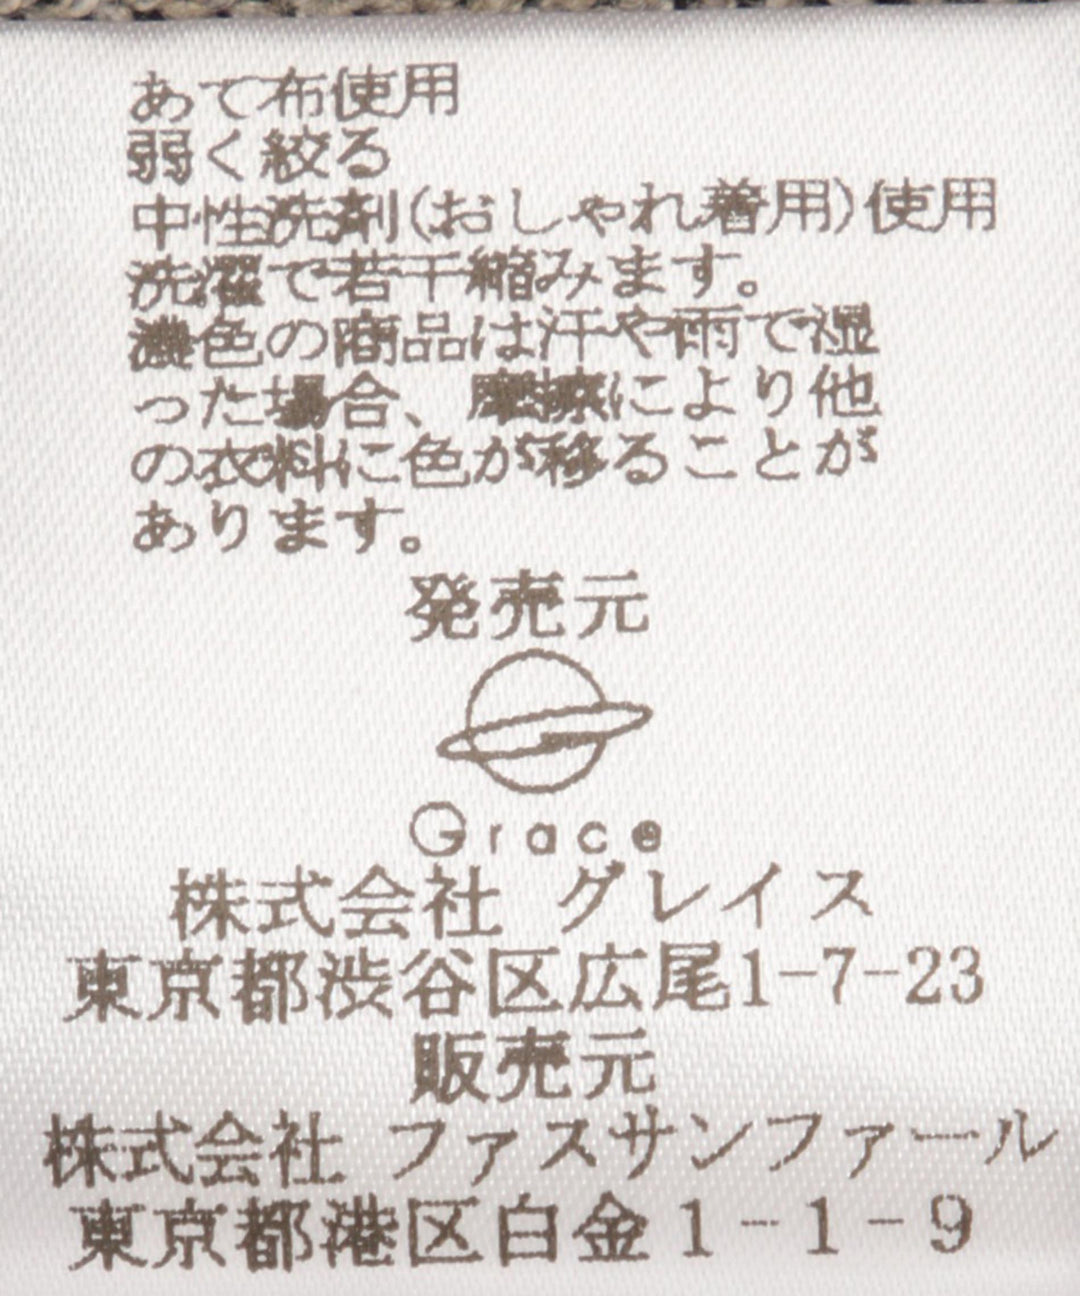 あて布使用
弱く絞る
中性洗剤(おしゃれ着用)使用
洗濯で若干縮みます。
濃色の商品は汗や雨で湿
った場合、摩擦により他
の衣料に色が移ることが
あります。
発売元
Grace
株式会社 グレイス
東京都渋谷区広尾1-7-23
販売元
株式会社 ファスサンファール
東京都港区白金1-1-9